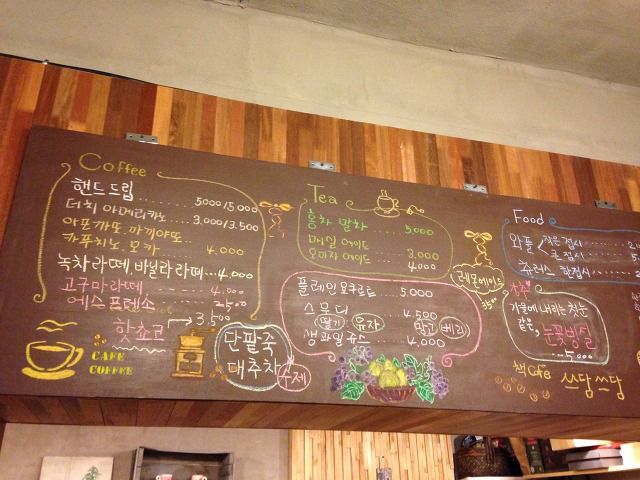 Coffee
핸드드립 ......... 5000/5.000
더치 아메리카노 .... 3,000/3.500
아포카토. 마끼아또
카푸치노. 모카 ...... 4,000
녹차라떼 바닐라라떼 .. 4,000
고구마라떼 ....... 4,000
에스프레소 ....... 2500
핫쵸코 → 3,500
CAFE
COFFEE
단팥죽
대추차
수제
Tea
홍차 말차 ...... 5,000
매실 에이드
오미자 에이드 .... 3.000
4,000
레몬에이드
3500
플레인요구르트 ... 5,000
스무디 ....... 4500
딸기 유자 망고 베리
생과일쥬스 ...... 4,000
Food
와플 작은접시
큰접시
츄러스 한접시
겨울에 내리는 첫눈
같은, 눈꽃빙설
5,000
책cafe 쓰담쓰담